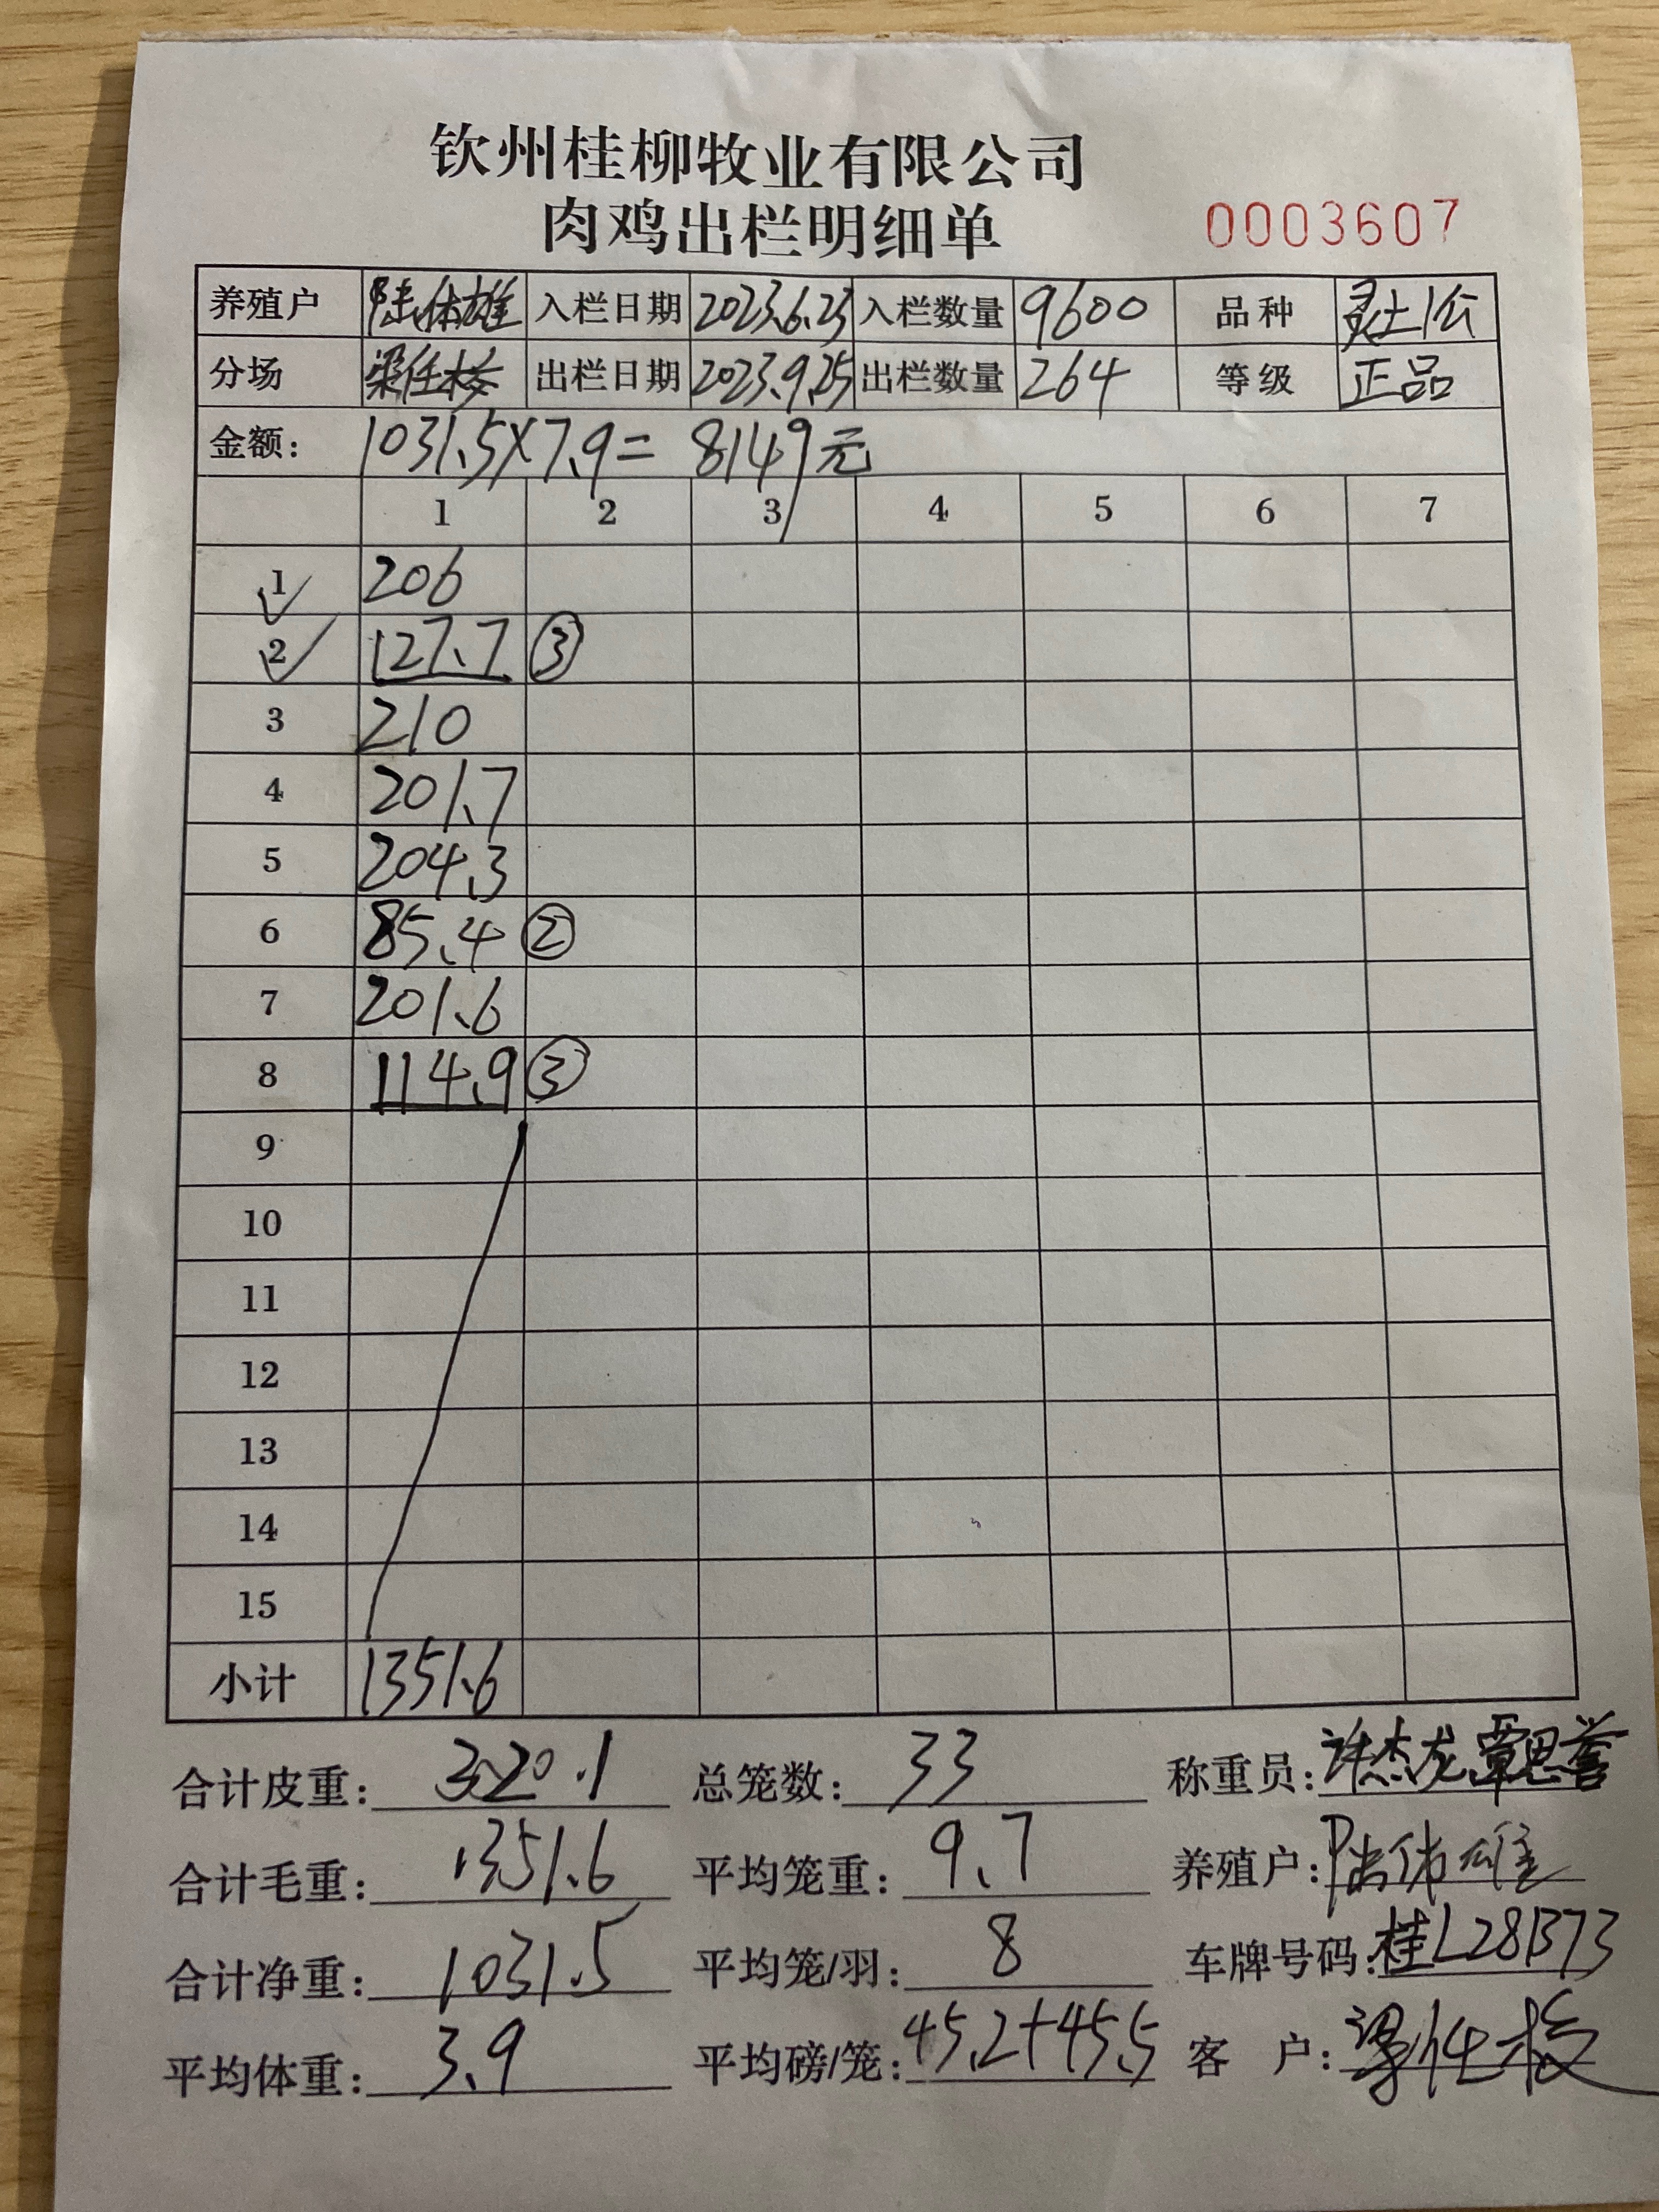 钦州桂柳牧业有限公司
肉鸡出栏明细单 0003607
养殖户 入栏日期 2023.6.23 入栏数量 9600 品种 灵土1公
分场 梁任 出栏日期 2023.9.25 出栏数量 264 等级 正品
金额: 1031.5×7.9= 8149元
1 2 3 4 5 6 7
1 206
2 127.7 ③
3 210
4 201.7
5 204.3
6 85.4 ②
7 201.6
8 114.9 ③
9
10
11
12
13
14
15
小计 1351.6
合计皮重: 320.1 总笼数: 33 称重员: 许杰龙 覃思誉
合计毛重: 1351.6 平均笼重: 9.7 养殖户: 陆伟雄
合计净重: 1031.5 平均笼/羽: 8 车牌号码: 桂L28B73
平均体重: 3.9 平均磅/笼: 45.2+45.5 客 户: